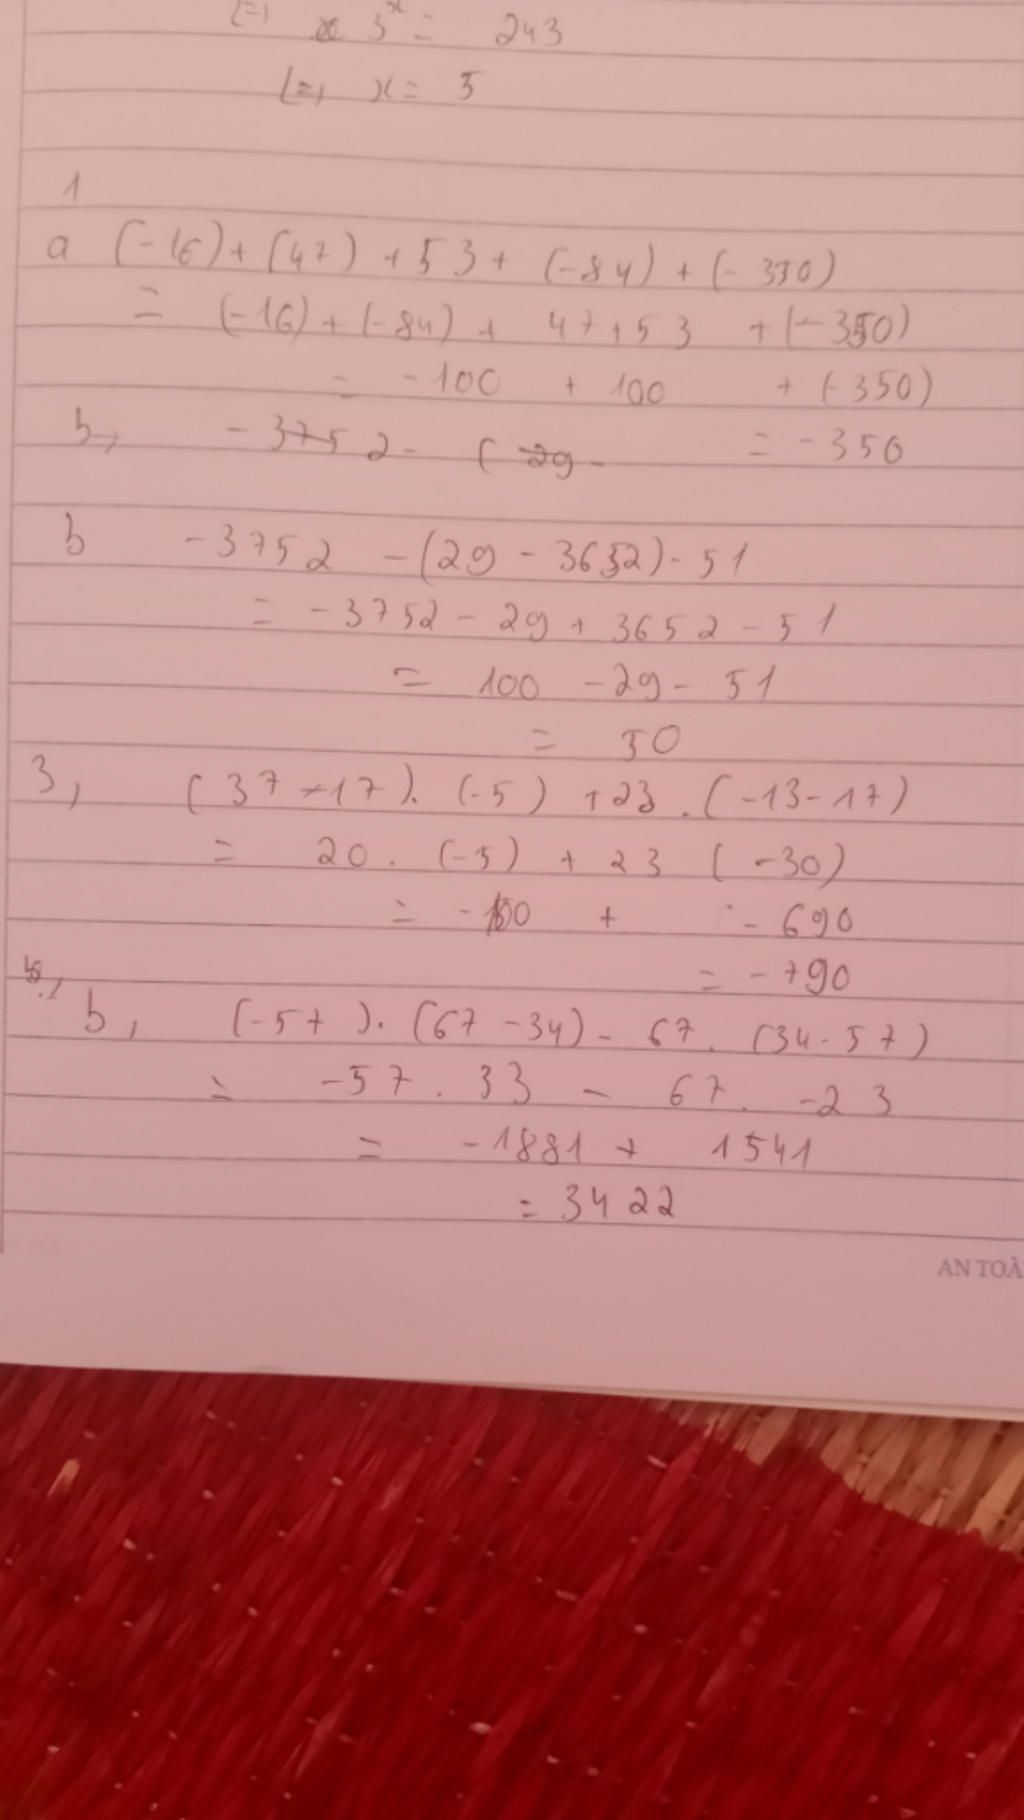 <=> 3^x = 243
<=> x = 5
1
a (-16) + (47) + 53 + (-84) + (-350)
= (-16) + (-84) + 47 + 53 + (-350)
= -100 + 100 + (-350)
b, -3752 - ( 29 - = -350
b -3752 - (29 - 3652) - 51
= -3752 - 29 + 3652 - 51
= 100 - 29 - 51
= 50
3, (37 - 17). (-5) + 23 . (-13 - 17)
= 20 . (-5) + 23 (-30)
= -100 + -690
= -790
b, (-57). (67 - 34) - 67. (34 - 57)
= -57 . 33 - 67. -23
= -1881 + 1541
= 3422
AN TOÀ